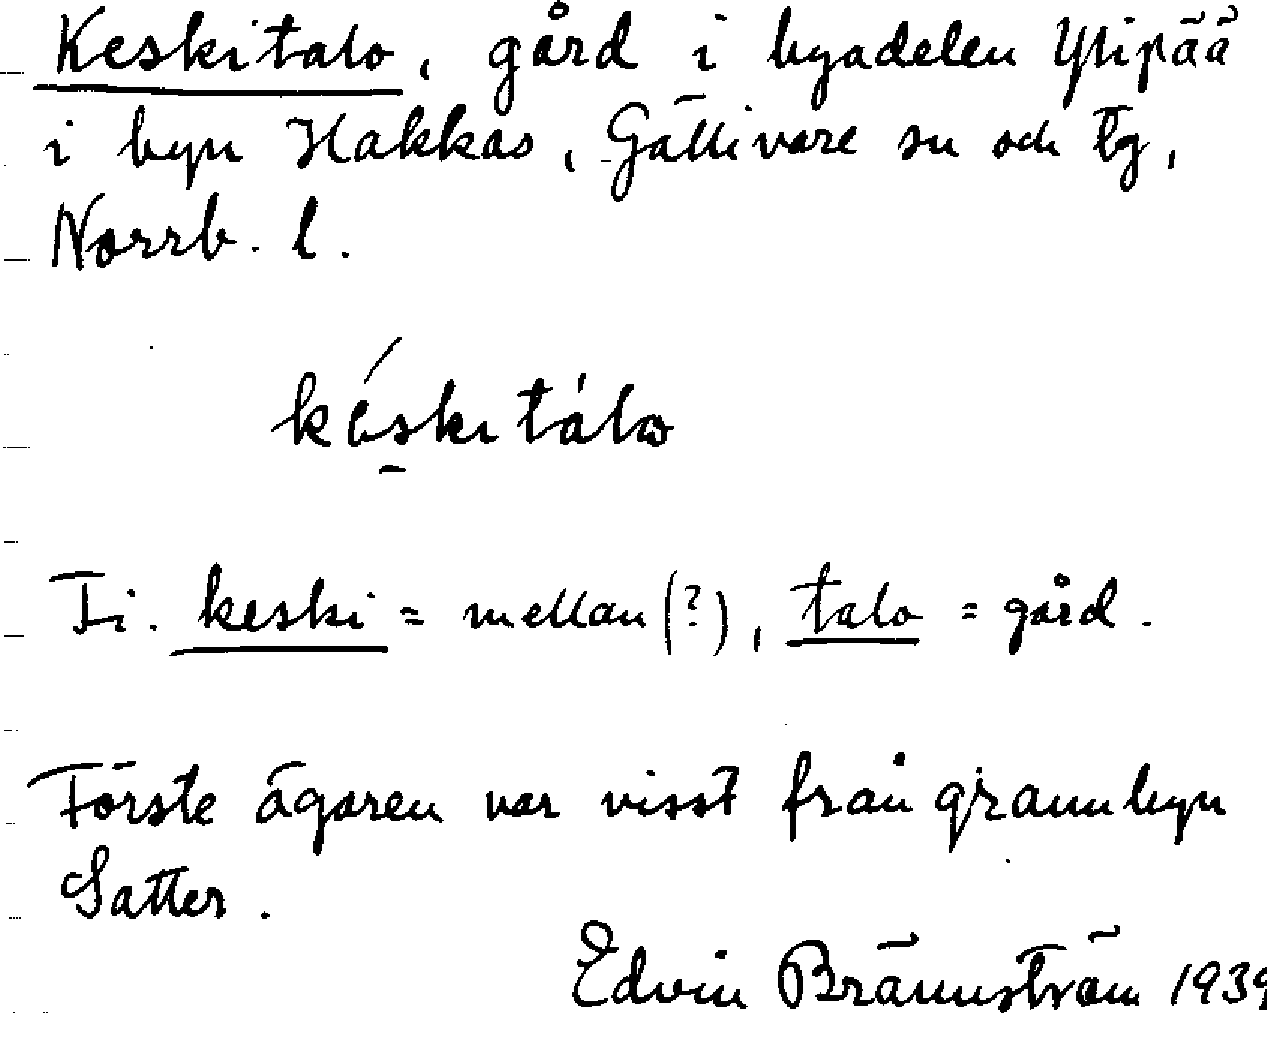 Keskitalo, gård i byadelen Ylipää
i byn Hakkas, Gällivare sn och tg,
Norrb. l.
késkitálo
Fi. keski = mellan (?), talo = gård.
Förste ägaren var visst från grannbyn
Satter.
Edvin Brännström 1939